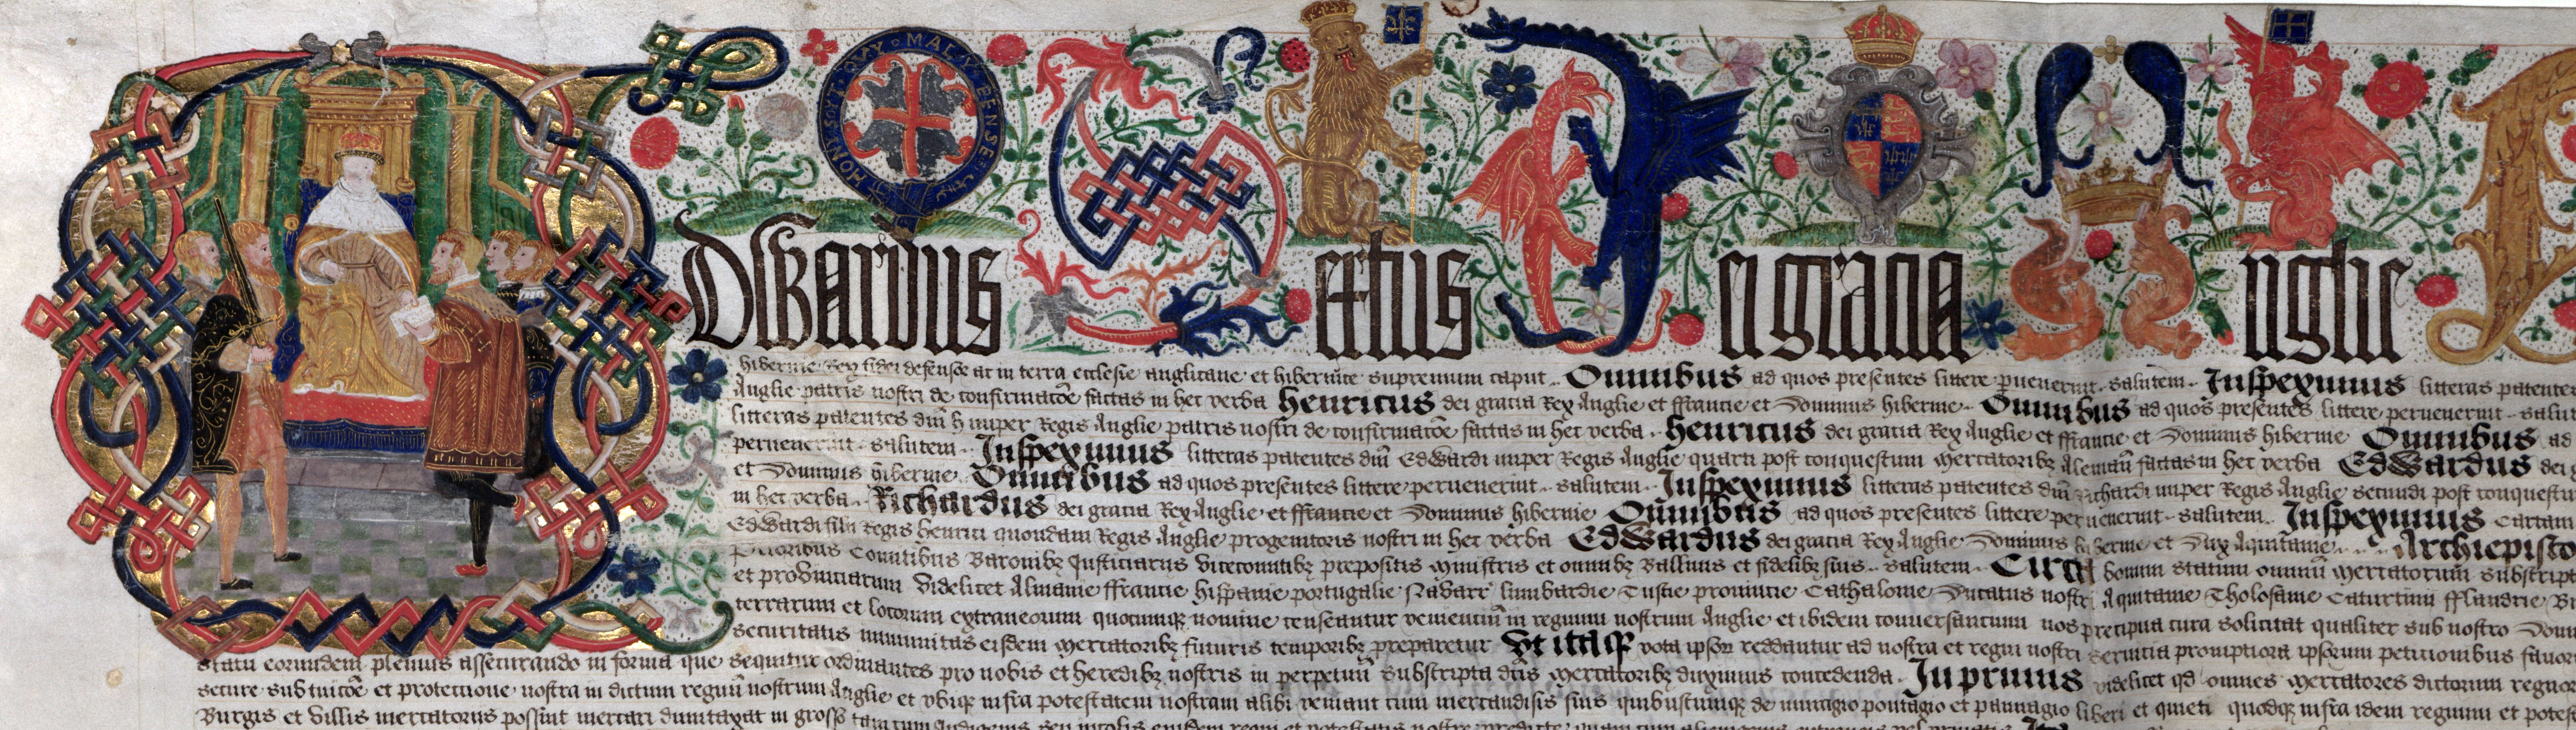 HONY SOYT QVY MAL Y PENSE
Edwardus Sextus Dei gracia Anglie
hibernie Rex fidei defensor ac in terra ecclesie anglicane et hibernice supremum caput Omnibus ad quos presentes littere pervenerint salutem Inspeximus litteras patentes
Anglie patris nostri de confirmacoe factas in hec verba Henricus dei gracia Rex Anglie et ffrancie et Dominus hibernie Omnibus ad quos presentes littere pervenerint
litteras patentes dni h nuper Regis Anglie patris nostri de confirmacoe factas in hec verba Henricus dei gracia Rex Anglie et ffrancie et Dominus hibernie Omnibus ad
pervenerint salutem Inspeximus litteras patentes dni Edwardi nuper Regis Anglie quarti post conquestum mercatoribz Aleman factas in hec verba Edwardus dei
et Dominus hibernie Omnibus ad quos presentes littere pervenerint salutem Inspeximus litteras patentes dni Richardi nuper Regis Anglie secundi post conquestu
in hec verba Richardus dei gracia Rex Anglie et ffrancie et Dominus hibernie Omnibus ad quos presentes littere pervenerint salutem Inspeximus Cartam
Edwardi filii Regis henrici quondam Regis Anglie progenitoris nostri in hec verba Edwardus dei gracia Rex Anglie Dominus hibernie et Dux Aquitanie Archiepisco
Prioribus Comitibus Baronibz Justiciariis vicecomitibz prepositis ministris et omnibz Ballivis et fidelibz suis salutem Circa bonum statum omniu mercatorum subscript
et provinciarum videlicet Almanie ffrancie hispanie portugalie Navarr lumbardie Tuscie provincie Cathalonie Ducatus nostri Aquitanie Tholosane Caturcini fflandrie
terrarum et locorum extraneorum quocumqz nomine censeantur venientiu in regnum nostrum Anglie et ibidem conversancium nos precipua cura solicitat qualiter sub nostro
securitatis immunitas eisdem mercatoribz futuris temporibz preparetur Ut itaqz vota ipsor reddantur ad nostra et regni nostri servicia promptiora ipsorum peticionibus favor
statu eorumdem plenius assecurando in forma que sequitur ordinantes pro nobis et heredibz nostris in perpetuu subscripta dcis mercatoribz duximus concedenda In primis videlicet qd omnes mercatores dictorum regnor
secure sub tuicoe et protectione nostra in dictum regnu nostrum Anglie et ubiqz infra potestatem nostram alibi veniant cum mercandisis suis quibuscumqz de muragio pontagio et pannagio liberi et quieti quodqz infra idem regnum et potes
Burgis et villis mercatoriis possint mercari dumtaxat in grosso